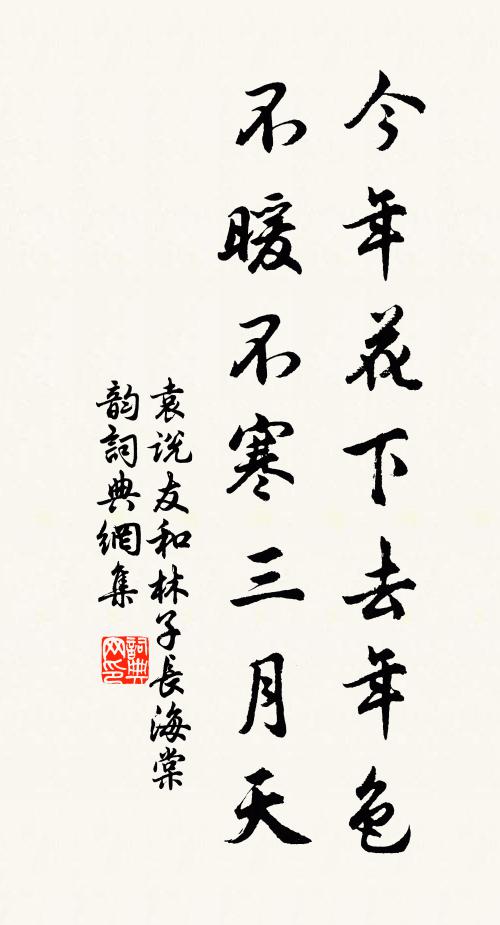 今年花下去年色
不暖不寒三月天
袁说友和林子長海棠
韵詞典網集
詞典网印